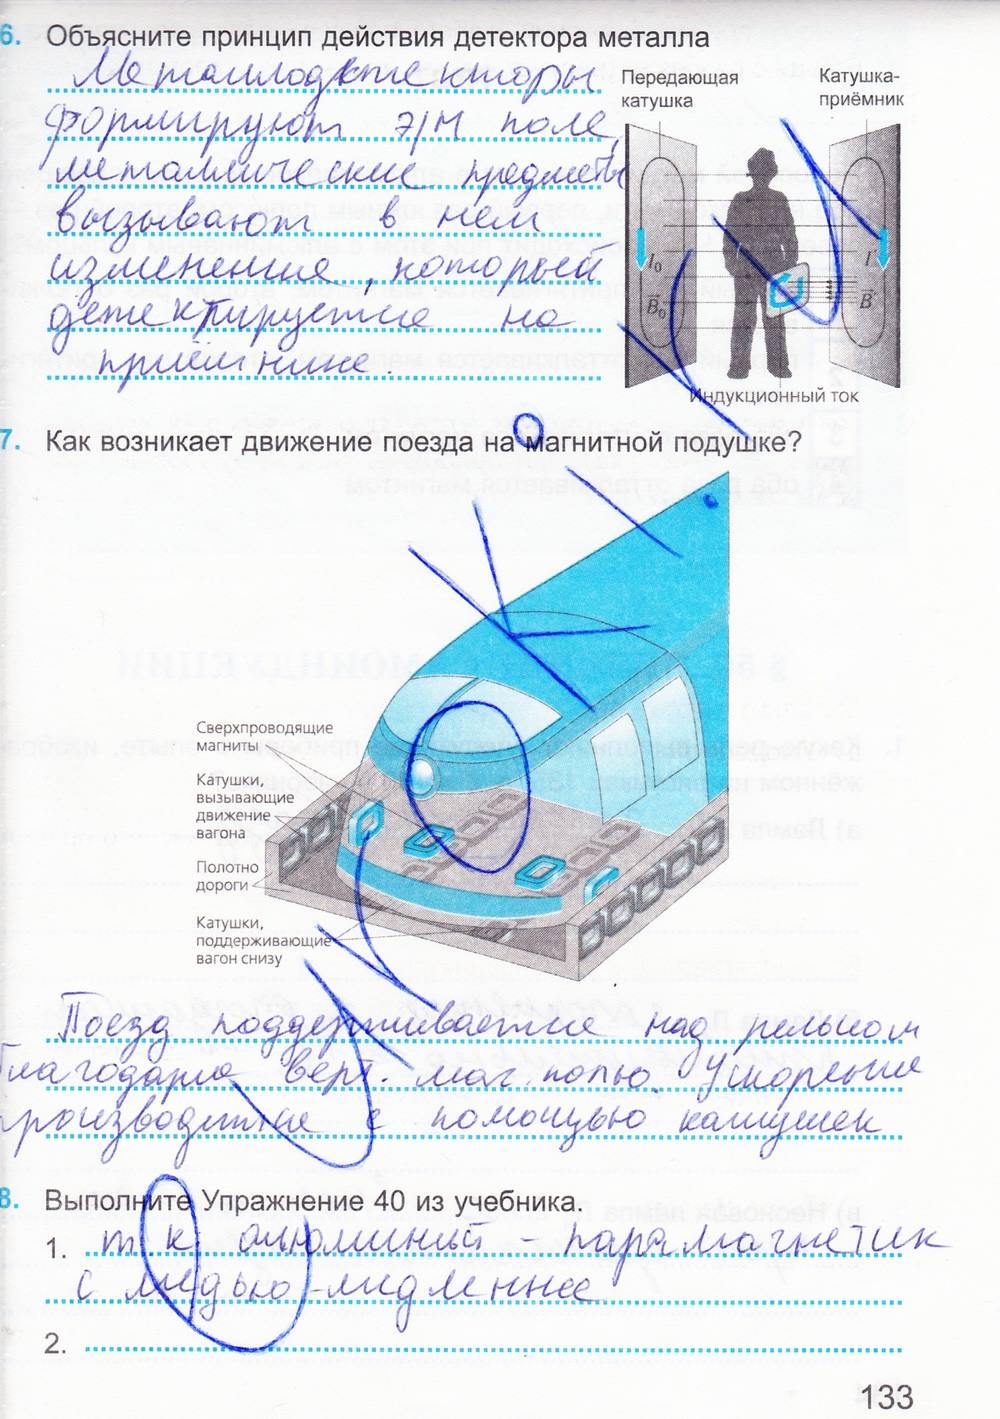 6. Объясните принцип действия детектора металла
Металлодетекторы
формируют э/м поле,
металлические предметы
вызывают в нём
изменения, который
детектируется на
приёмнике.
Передающая
катушка
Катушка-
приёмник
I₀
I
B₀
B
Индукционный ток
7. Как возникает движение поезда на магнитной подушке?
Сверхпроводящие
магниты
Катушки,
вызывающие
движение
вагона
Полотно
дороги
Катушки,
поддерживающие
вагон снизу
Поезд поддерживается над рельсом
благодаря верт. маг. полю. Ускорение
производится с помощью катушек
8. Выполните Упражнение 40 из учебника.
1. т к алюминий - парамагнетик
с медью -медленнее
2.
133